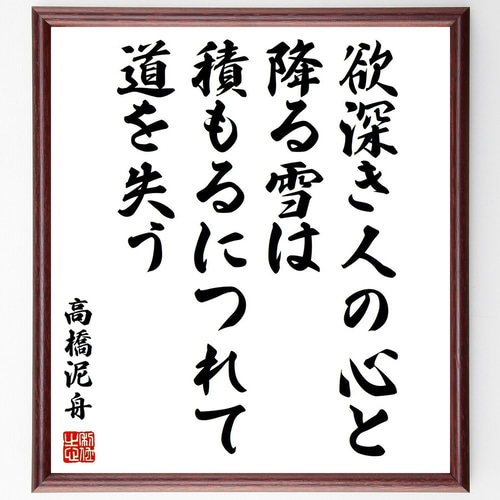 欲深き人の心と
降る雪は
積もるにつれて
道を失う
高橋泥舟